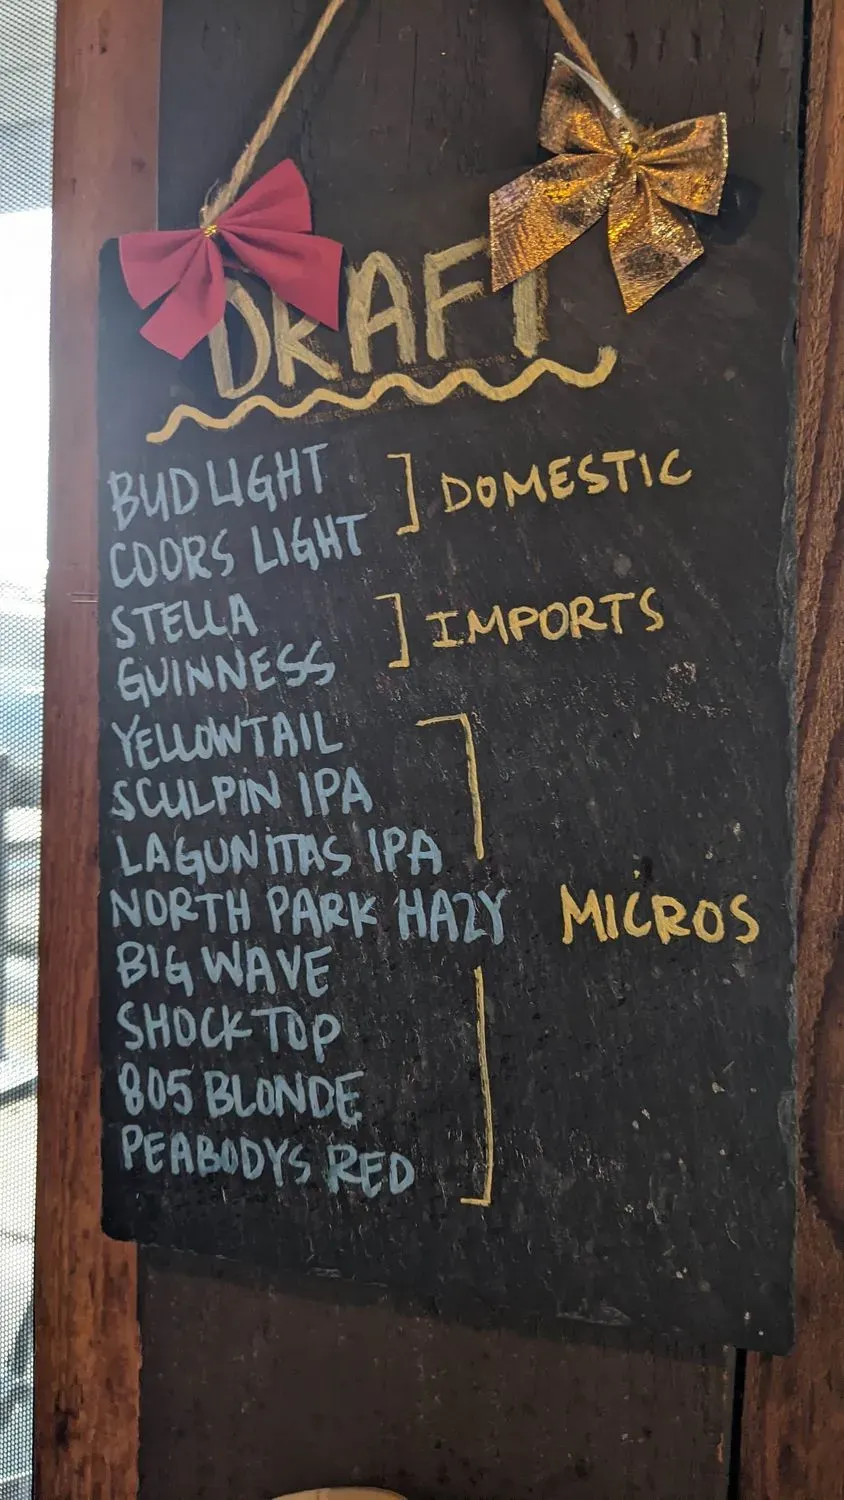 DRAFT
BUD LIGHT
COORS LIGHT
DOMESTIC
STELLA
GUINNESS
IMPORTS
YELLOWTAIL
SCULPIN IPA
LAGUNITAS IPA
NORTH PARK HAZY
BIG WAVE
SHOCK TOP
805 BLONDE
PEABODYS RED
MICROS